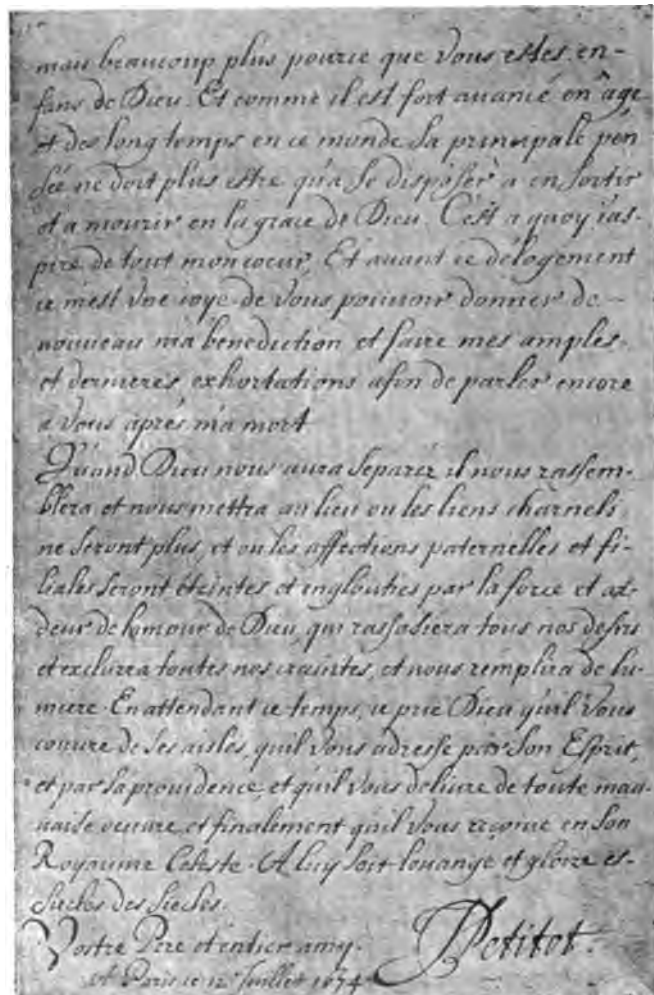 mais beaucoup plus pource que Vous estes en-
fans de Dieu. Et comme il est fort auancé en âge
et des long temps en ce monde Sa principale pen
sée ne doit plus estre qu'a Se disposer à en Sortir
et a mourir en la grace de Dieu. C'est a quoy i'as-
pire de tout mon coeur, Et auant ce délogement
ce m'est Vne ioye de Vous pouuoir donner de-
nouueau ma benediction et faire mes amples
et dernieres exhortations afin de parler encore
a Vous aprés ma mort
Quand Dieu nous aura Separéz il nous rassem-
blera et nous mettra au lieu ou les liens charnels
ne Seront plus, et ou les affections paternelles et fi-
liales Seront éteintes et inglouties par la force et ar-
deur de l'amour de Dieu, qui rassasiera tous nos desirs
et exclurra toutes nos craintes, et nous remplira de lu-
miere. En attendant ce temps, ie prie Dieu qu'il Vous
couure de Ses aisles, qu'il Vous adresse par Son Esprit,
et par Sa prouidence, et qu'il Vous deliure de toute mau-
uaise oeuure, et finalement qu'il Vous reçoiue en Son
Royaume Celeste. A luy Soit louange et gloire es-
Siecles des Siecles.
Vostre Pere et entier amy.
Petitot.
A Paris ce 12 Juillet 1674